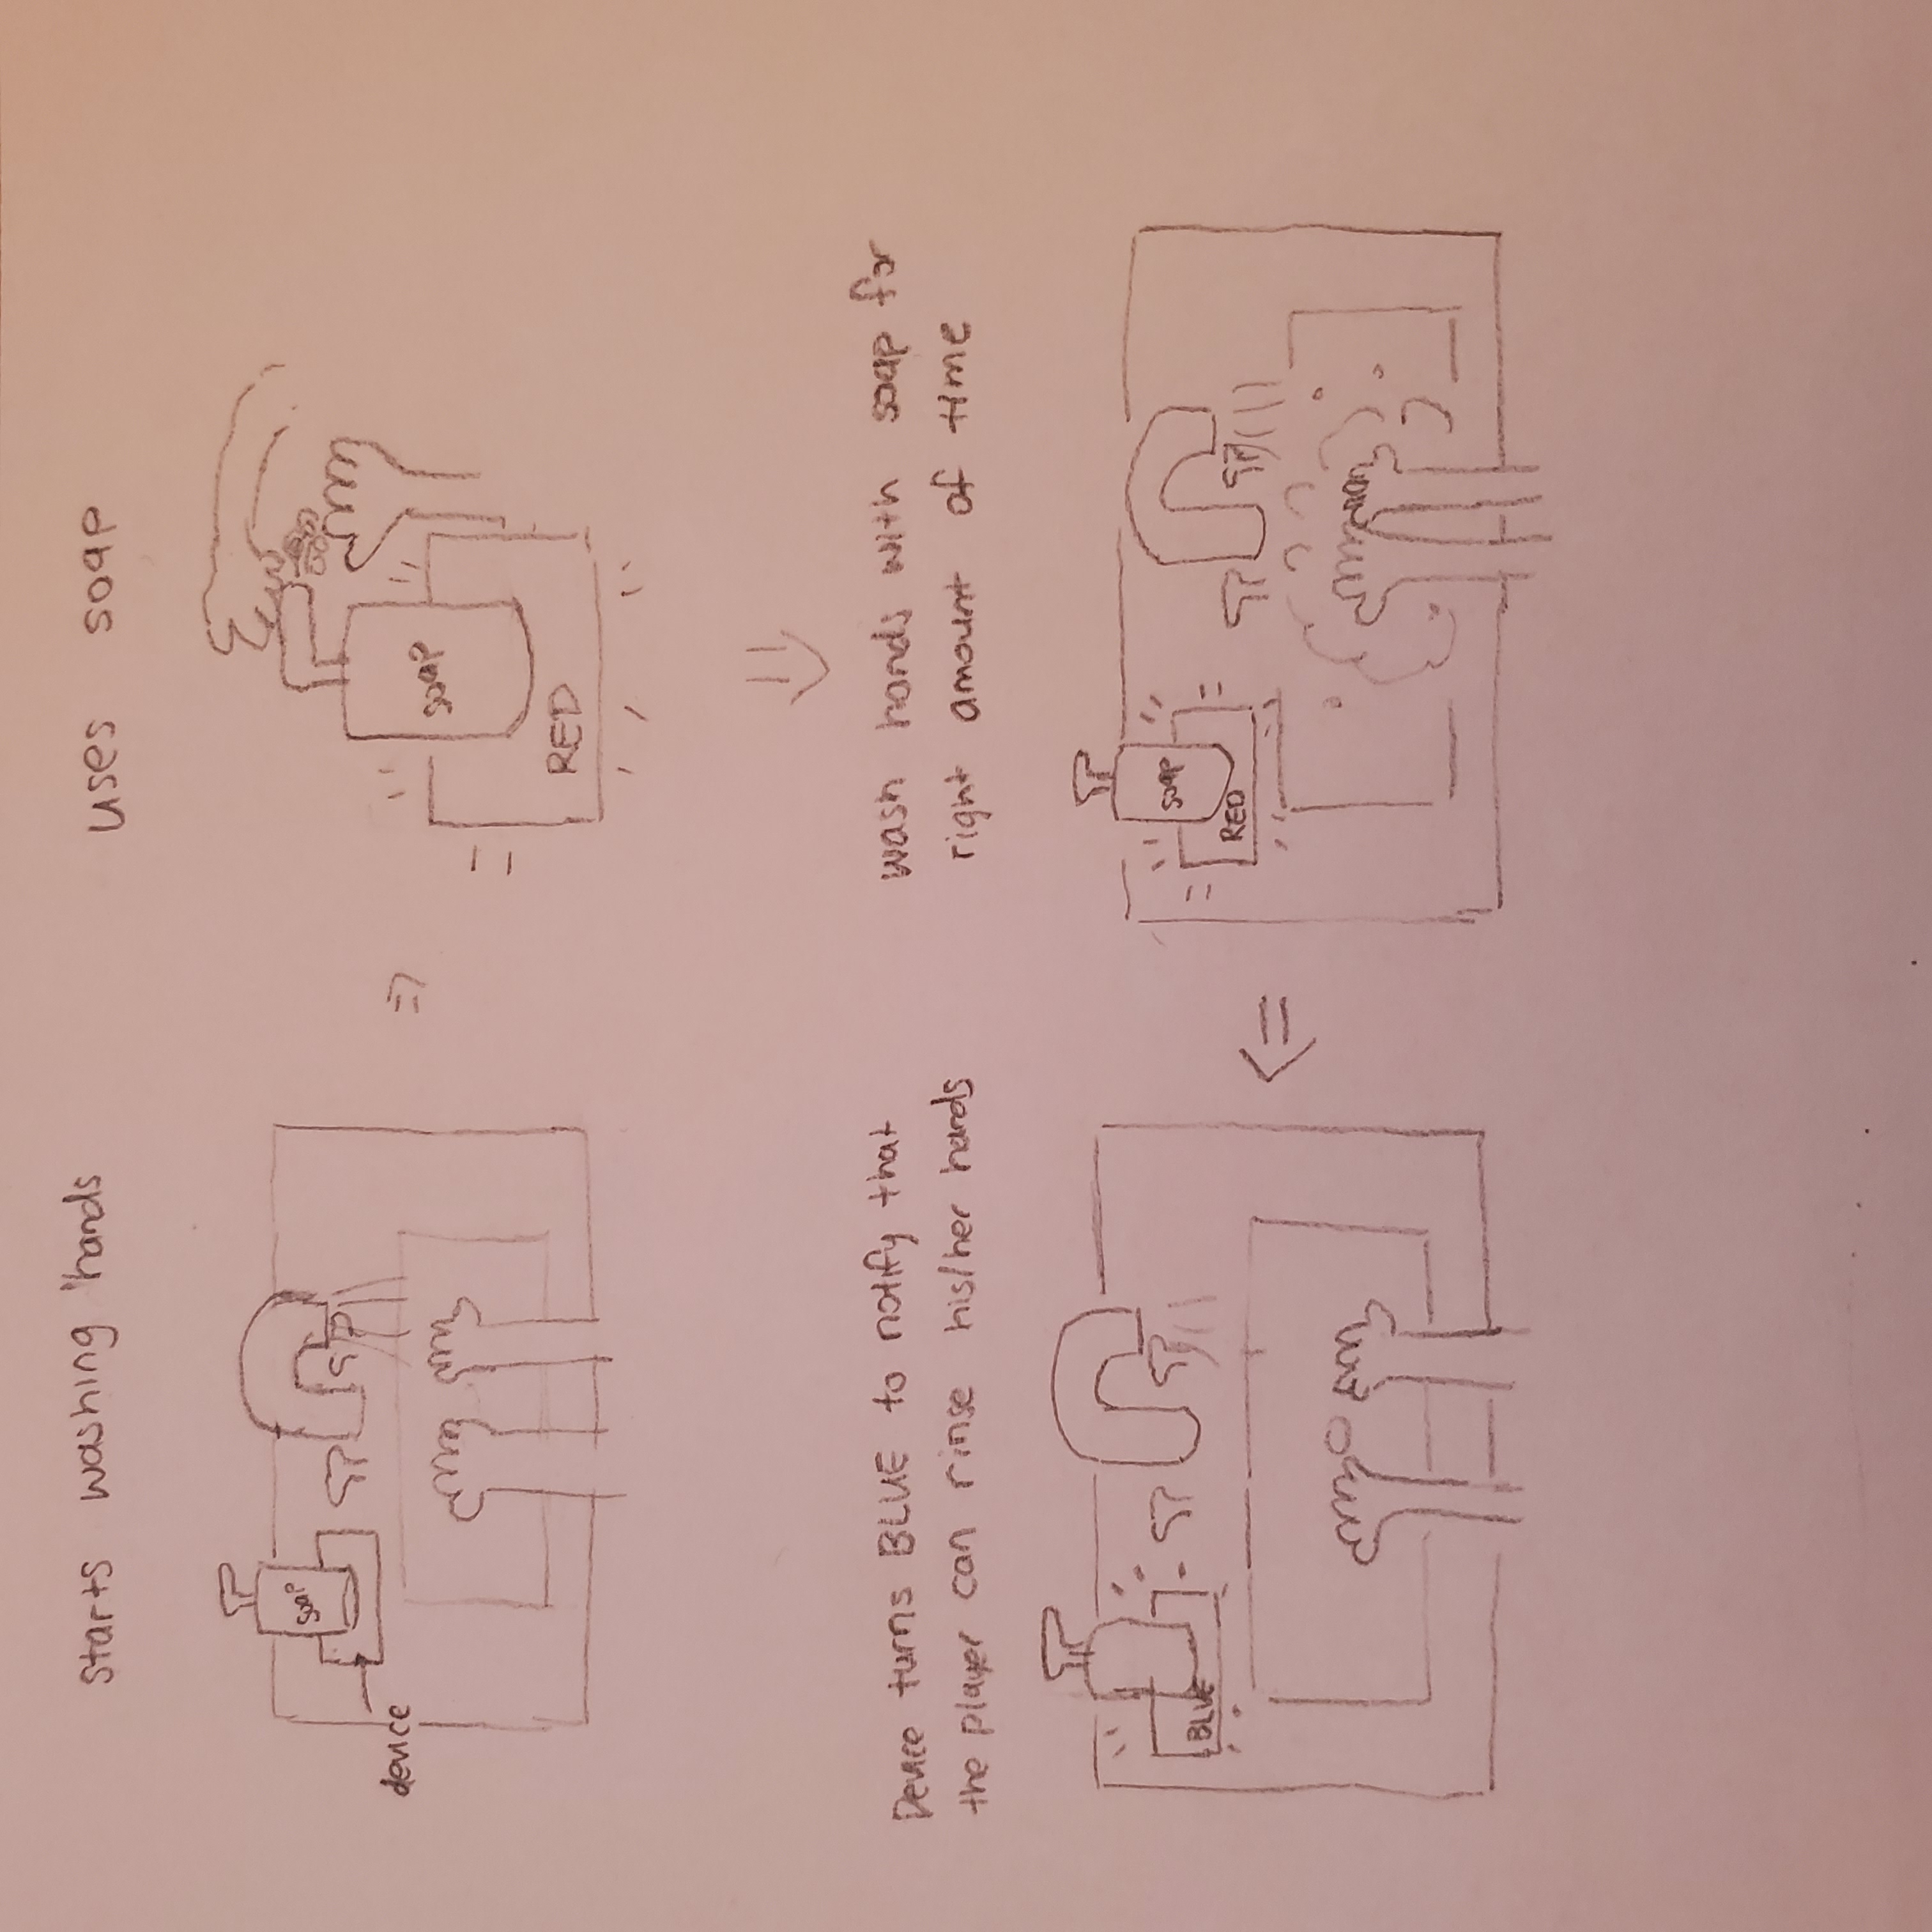 starts washing hands
uses soap
soap
device
soap
RED
wash hands with soap for
right amount of time
soap
RED
Device turns BLUE to notify that
the player can rinse his/her hands
BLUE